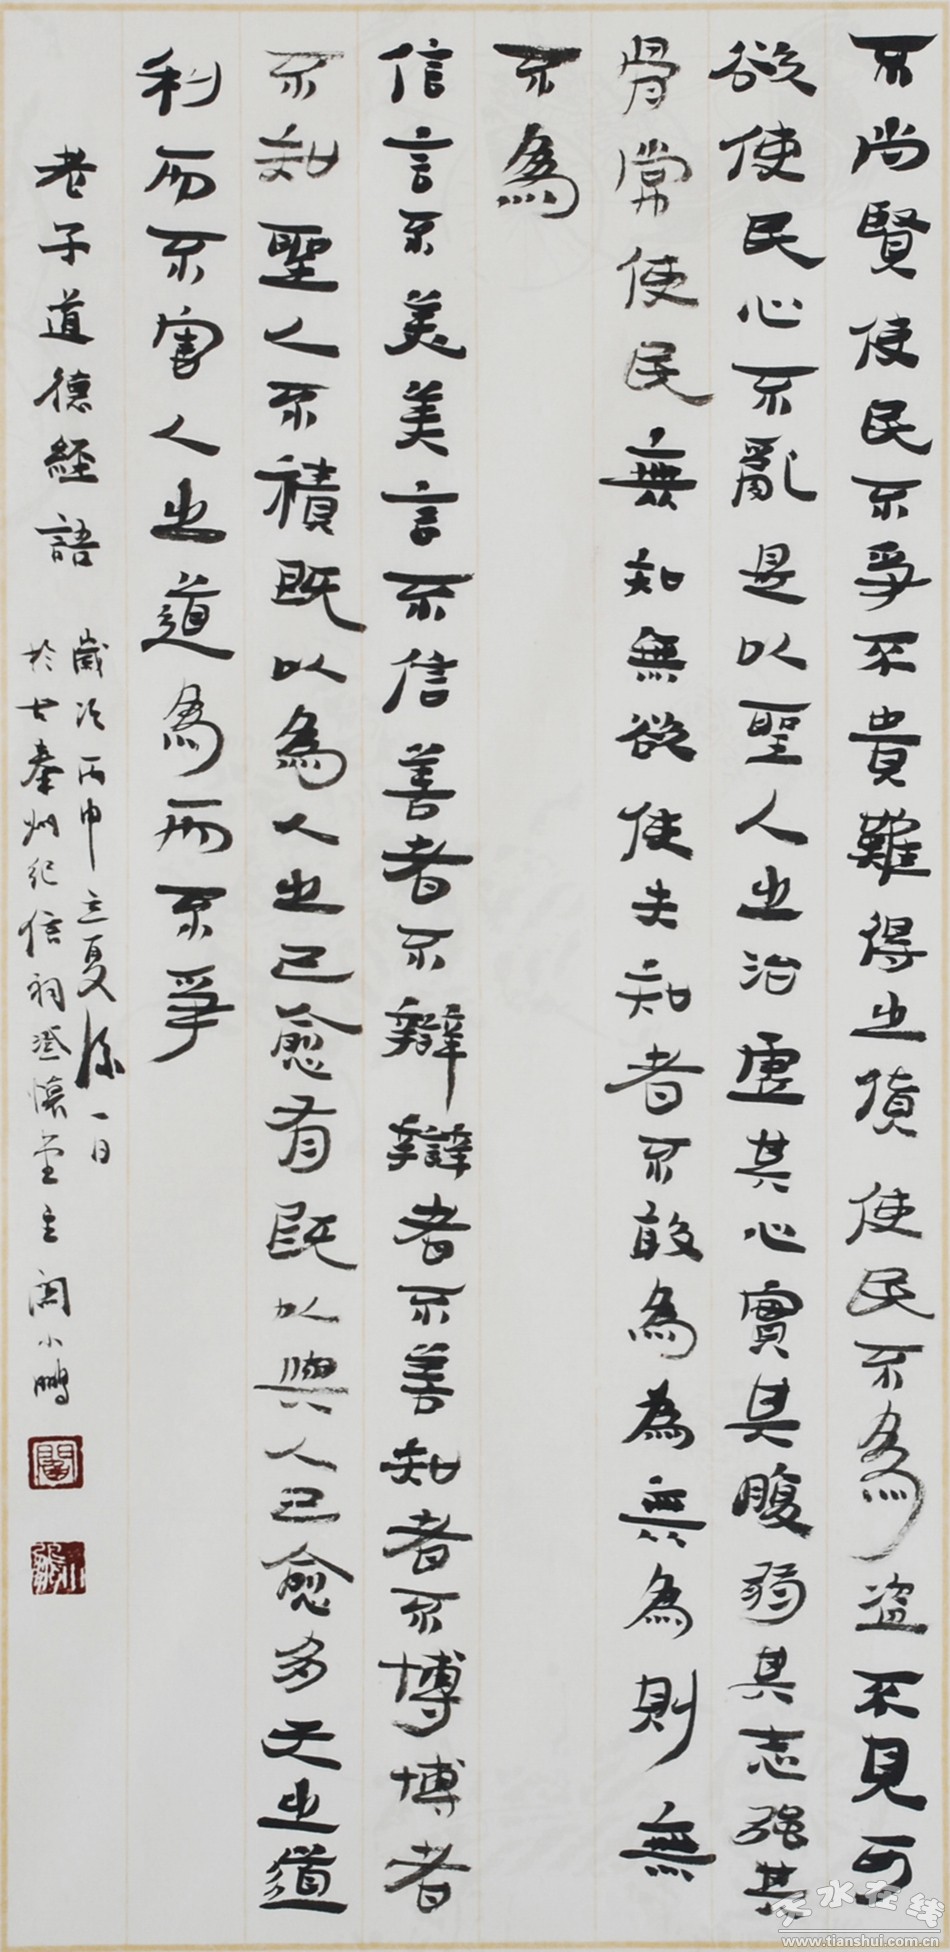 不尚賢使民不爭不貴難得之貨使民不為盜不見可
欲使民心不亂是以聖人之治虛其心實其腹弱其志強其
骨常使民無知無欲使夫知者不敢為為無為則無
不為
信言不美美言不信善者不辯辯者不善知者不博博者
不知聖人不積既以為人之己愈有既以與人己愈多天之道
利而不害人之道為而不爭
老子道德經語
歲次丙申立夏後一日
於古秦州紀信祠澄懷堂主閻小鵬
閻
小鵬
天水在线
www.tianshui.com.cn